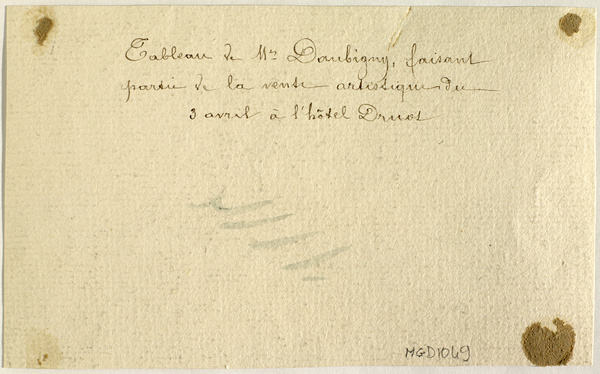 Tableau de Mr Daubigny, faisant
partie de la vente artistique du
3 avril à l'hôtel Druot
MGD1049